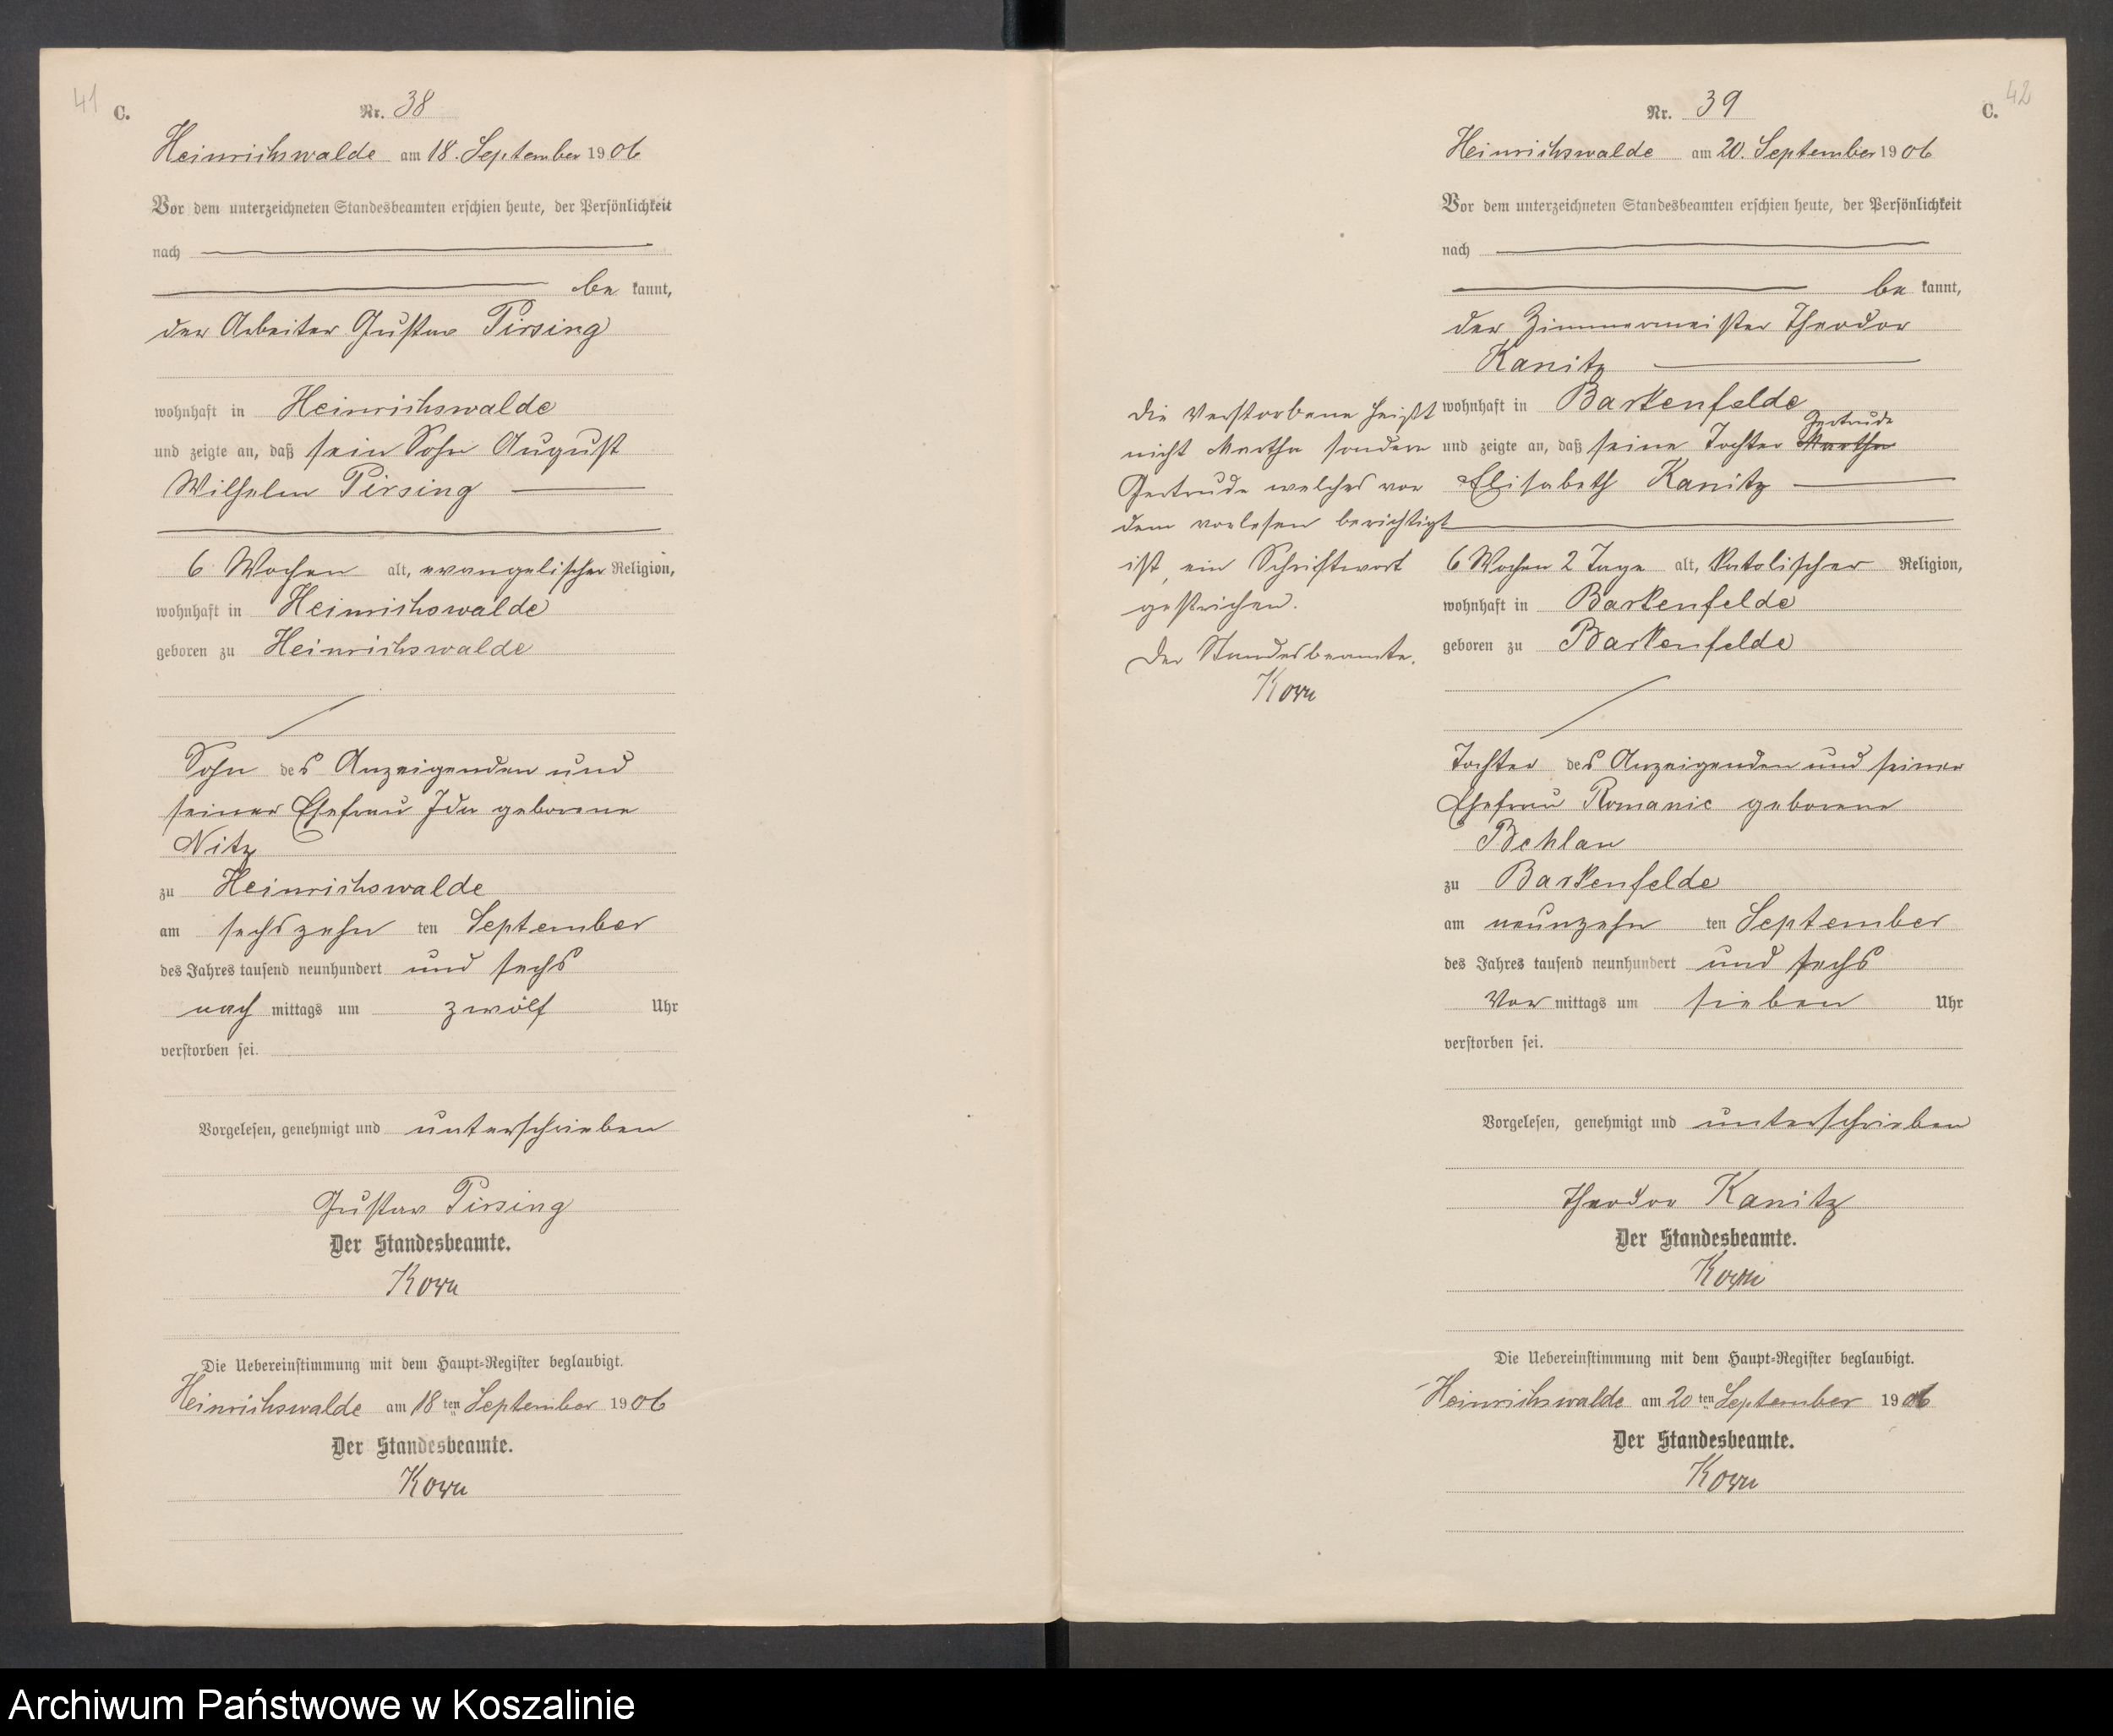 41
C.
Nr. 38
Heinrichswalde am 18. September 1906
Vor dem unterzeichneten Standesbeamten erschien heute, der Persönlichkeit
nach
be kannt,
der Arbeiter Gustav Pirsing
wohnhaft in Heinrichswalde
und zeigte an, daß sein Sohn August
Wilhelm Pirsing
6 Wochen alt, evangelischer Religion,
wohnhaft in Heinrichswalde
geboren zu Heinrichswalde
Sohn des Anzeigenden und
seiner Ehefrau Ida geborene
Nitz
zu Heinrichswalde
am sechszehn ten September
des Jahres tausend neunhundert und sechs
nach mittags um zwölf Uhr
verstorben sei.
Vorgelesen, genehmigt und unterschrieben
Gustav Pirsing
Der Standesbeamte.
Korn
Die Uebereinstimmung mit dem Haupt-Register beglaubigt.
Heinrichswalde am 18 ten September 1906
Der Standesbeamte.
Korn
42
C.
Nr. 39
Heinrichswalde am 20. September 1906
Vor dem unterzeichneten Standesbeamten erschien heute, der Persönlichkeit
nach
be kannt,
der Zimmermeister Theodor
Kanitz
wohnhaft in Barkenfelde
Gertrude
und zeigte an, daß seine Tochter Martha
Elisabeth Kanitz
6 Wochen 2 Tage alt, katolischer Religion,
wohnhaft in Barkenfelde
geboren zu Barkenfelde
Tochter des Anzeigenden und seiner
Ehefrau Romanie geborene
Behlau
zu Barkenfelde
am neunzehn ten September
des Jahres tausend neunhundert und sechs
Vor mittags um sieben Uhr
verstorben sei.
Vorgelesen, genehmigt und unterschrieben
Theodor Kanitz
Der Standesbeamte.
Korn
Die Uebereinstimmung mit dem Haupt-Register beglaubigt.
Heinrichswalde am 20 ten September 1906
Der Standesbeamte.
Korn
Die Verstorbene heißt
nicht Martha sondern
Gertrude welches vor
dem vorlesen berichtigt
ist, ein Schriftwort
gestrichen.
Der Standesbeamte.
Korn
Archiwum Państwowe w Koszalinie